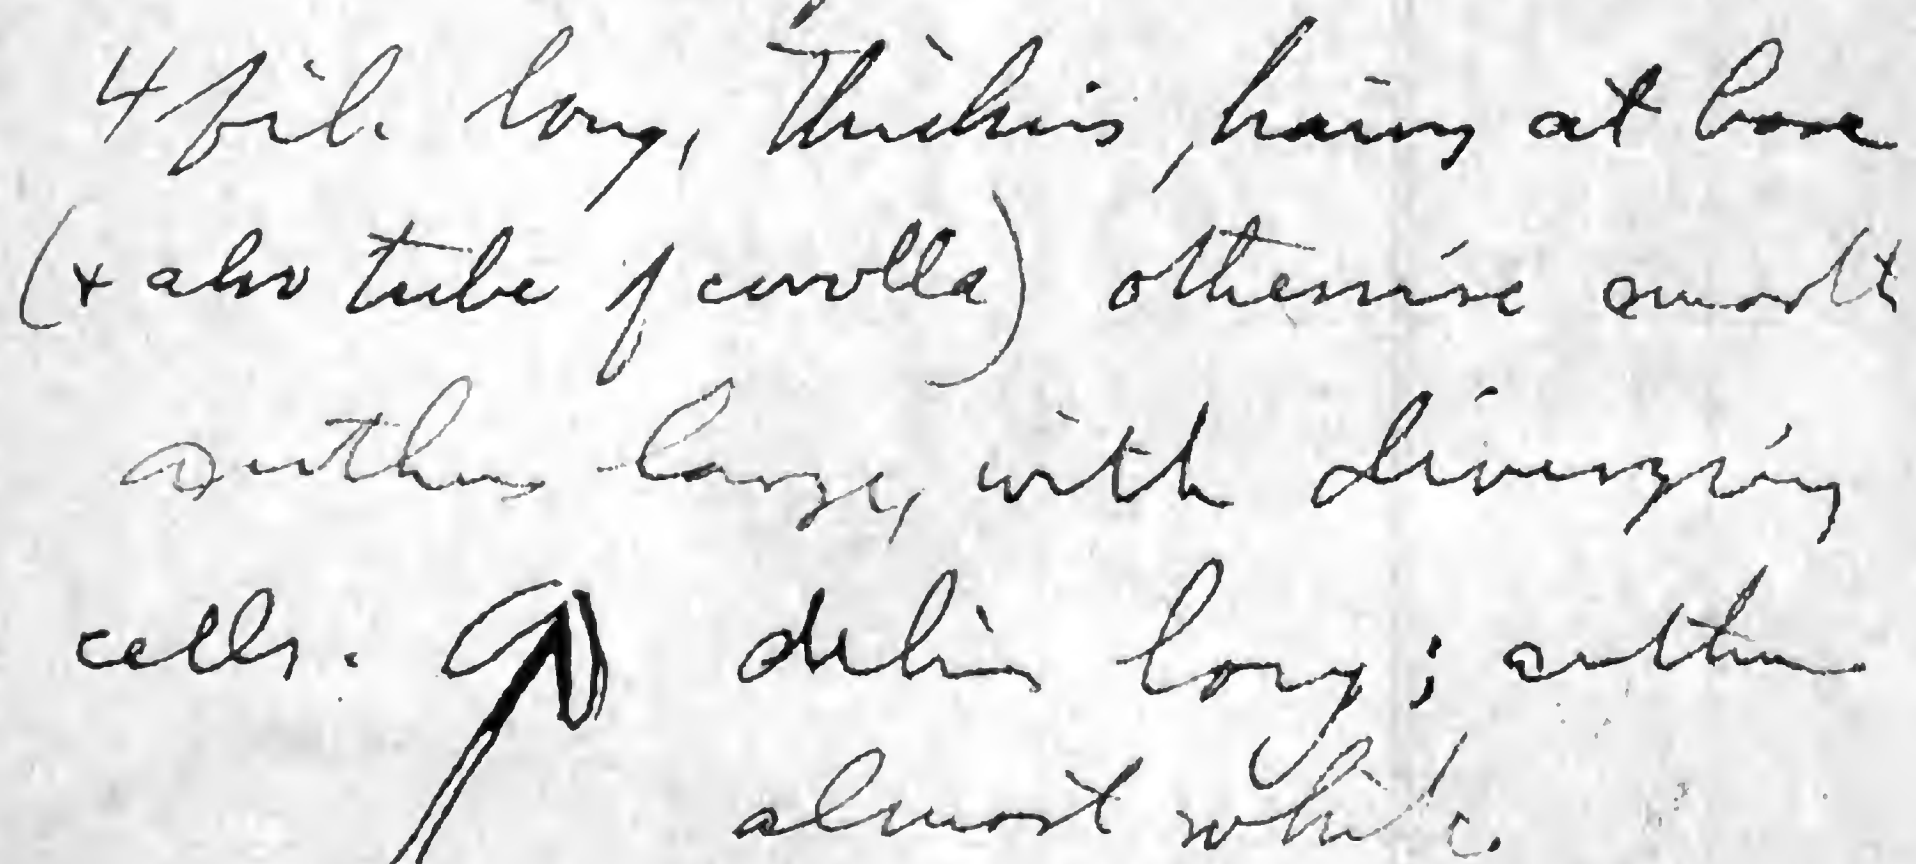 4 fil. long, thickish, hairy at base
(+ also tube of corolla) otherwise smooth
anthers large, with diverging
cells. long; anthers
almost white.